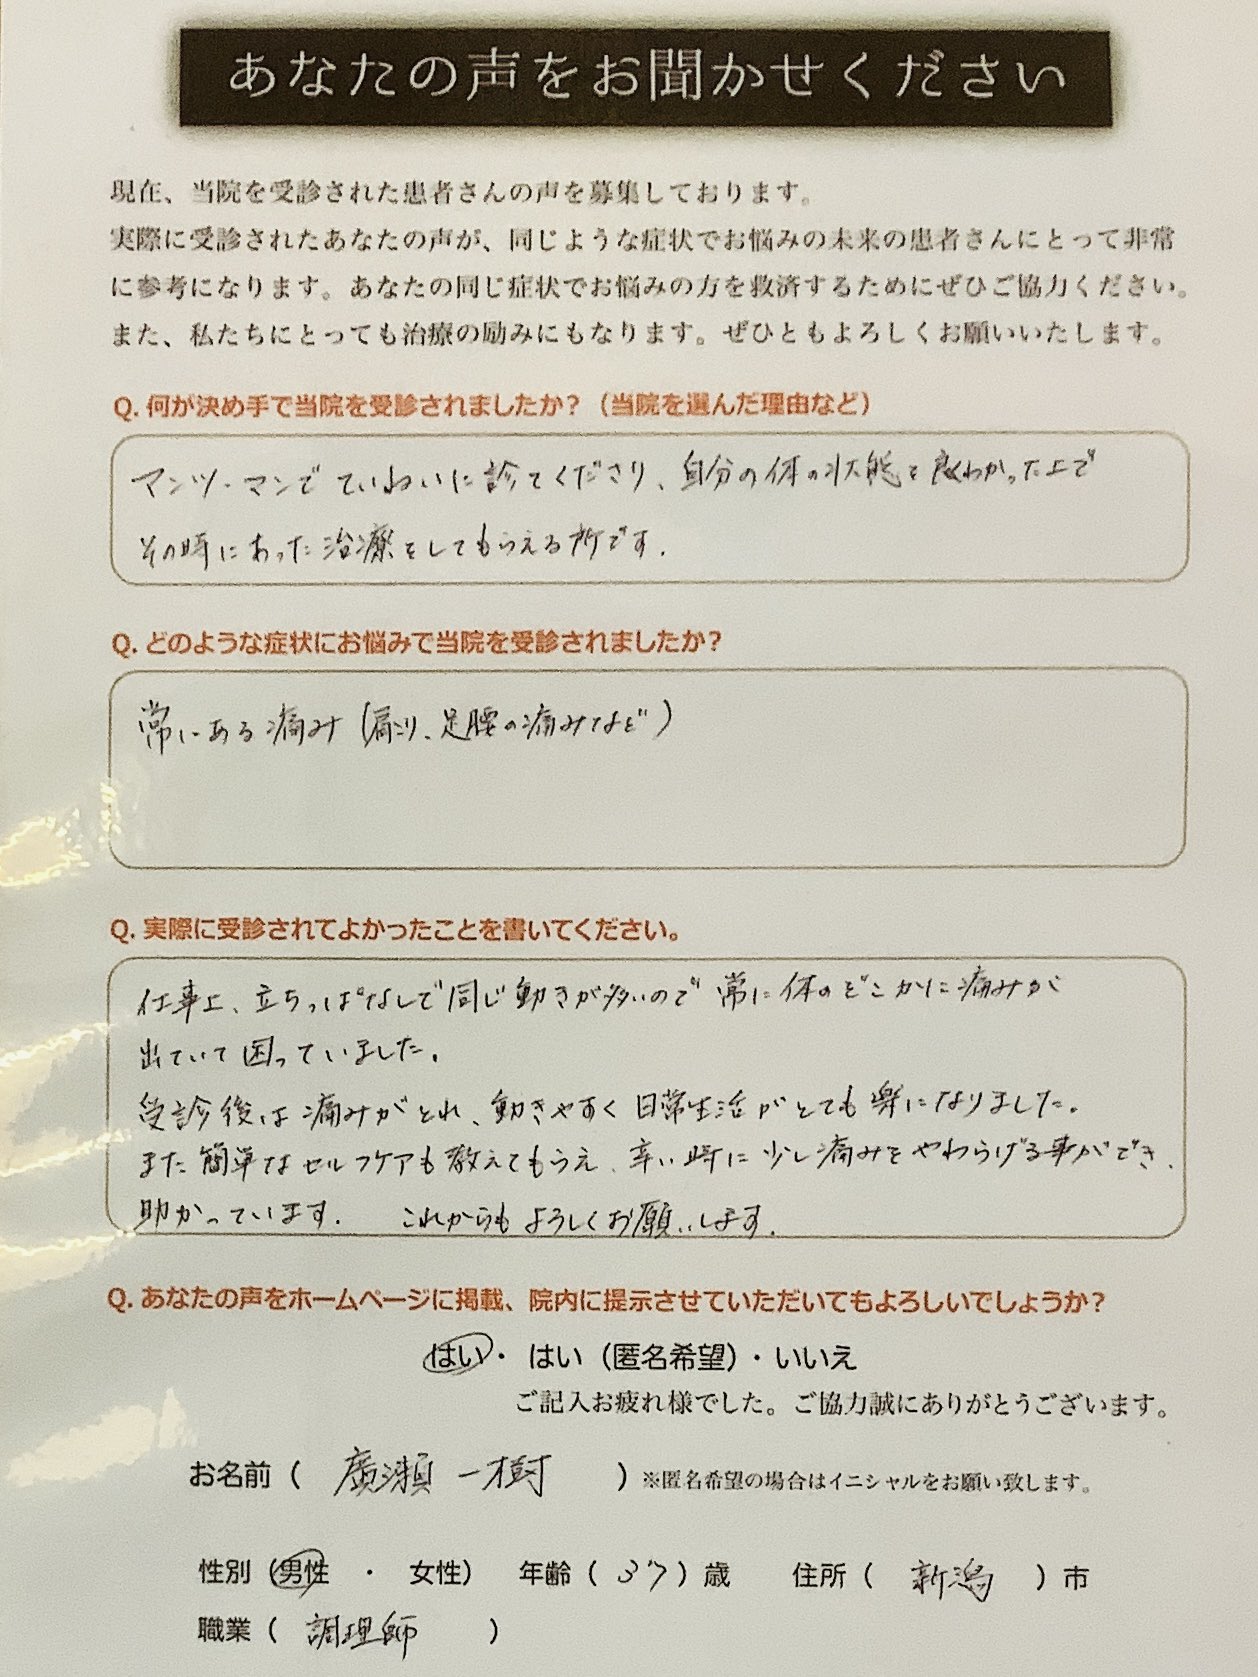 あなたの声をお聞かせください
現在、当院を受診された患者さんの声を募集しております。
実際に受診されたあなたの声が、同じような症状でお悩みの未来の患者さんにとって非常
に参考になります。あなたの同じ症状でお悩みの方を救済するためにぜひご協力ください。
また、私たちにとっても治療の励みにもなります。ぜひともよろしくお願いいたします。
Q. 何が決め手で当院を受診されましたか？（当院を選んだ理由など）
マンツ・マンでていねいに診てくださり、自分の体の状態を良くわかった上で
その時にあった治療をしてもらえる所です.
Q. どのような症状にお悩みで当院を受診されましたか？
常にある痛み(肩こり、足腰の痛みなど)
Q. 実際に受診されてよかったことを書いてください。
仕事上、立ちっぱなしで同じ動きが多いので常に体のどこかに痛みが
出ていて困っていました.
受診後は痛みがとれ、動きやすく日常生活がとても楽になりました.
また簡単なセルフケアも教えてもらえ、辛い時に少し痛みをやわらげる事ができ、
助かっています. これからもよろしくお願いします.
Q. あなたの声をホームページに掲載、院内に提示させていただいてもよろしいでしょうか？
はい・ はい（匿名希望）・いいえ
ご記入お疲れ様でした。ご協力誠にありがとうございます。
お名前（ 廣瀬 一樹 ）※匿名希望の場合はイニシャルをお願い致します。
性別（男性 ・ 女性） 年齢（ 37 ）歳 住所（ 新潟 ）市
職業（ 調理師 ）